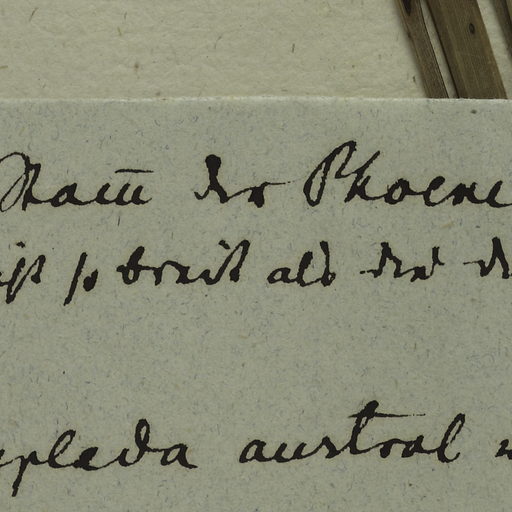 Stam̄ der Phoene
ist so breit als der de
uplada austral